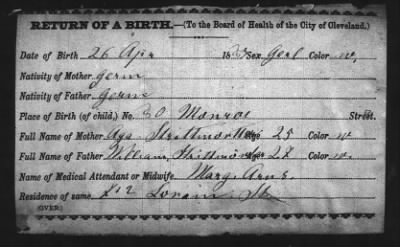 RETURN OF A BIRTH.—(To the Board of Health of the City of Cleveland.)
Date of Birth 26 Apr 18 Sex Gerl Color w.
Nativity of Mother germ
Nativity of Father germ
Place of Birth (of child,) No. 30 Monroe Street.
Full Name of Mother Age 25 Color w
Full Name of Father William Age 27 Color w.
Name of Medical Attendant or Midwife, Marg. Arns.
Residence of same Lorain St
(OVER.)